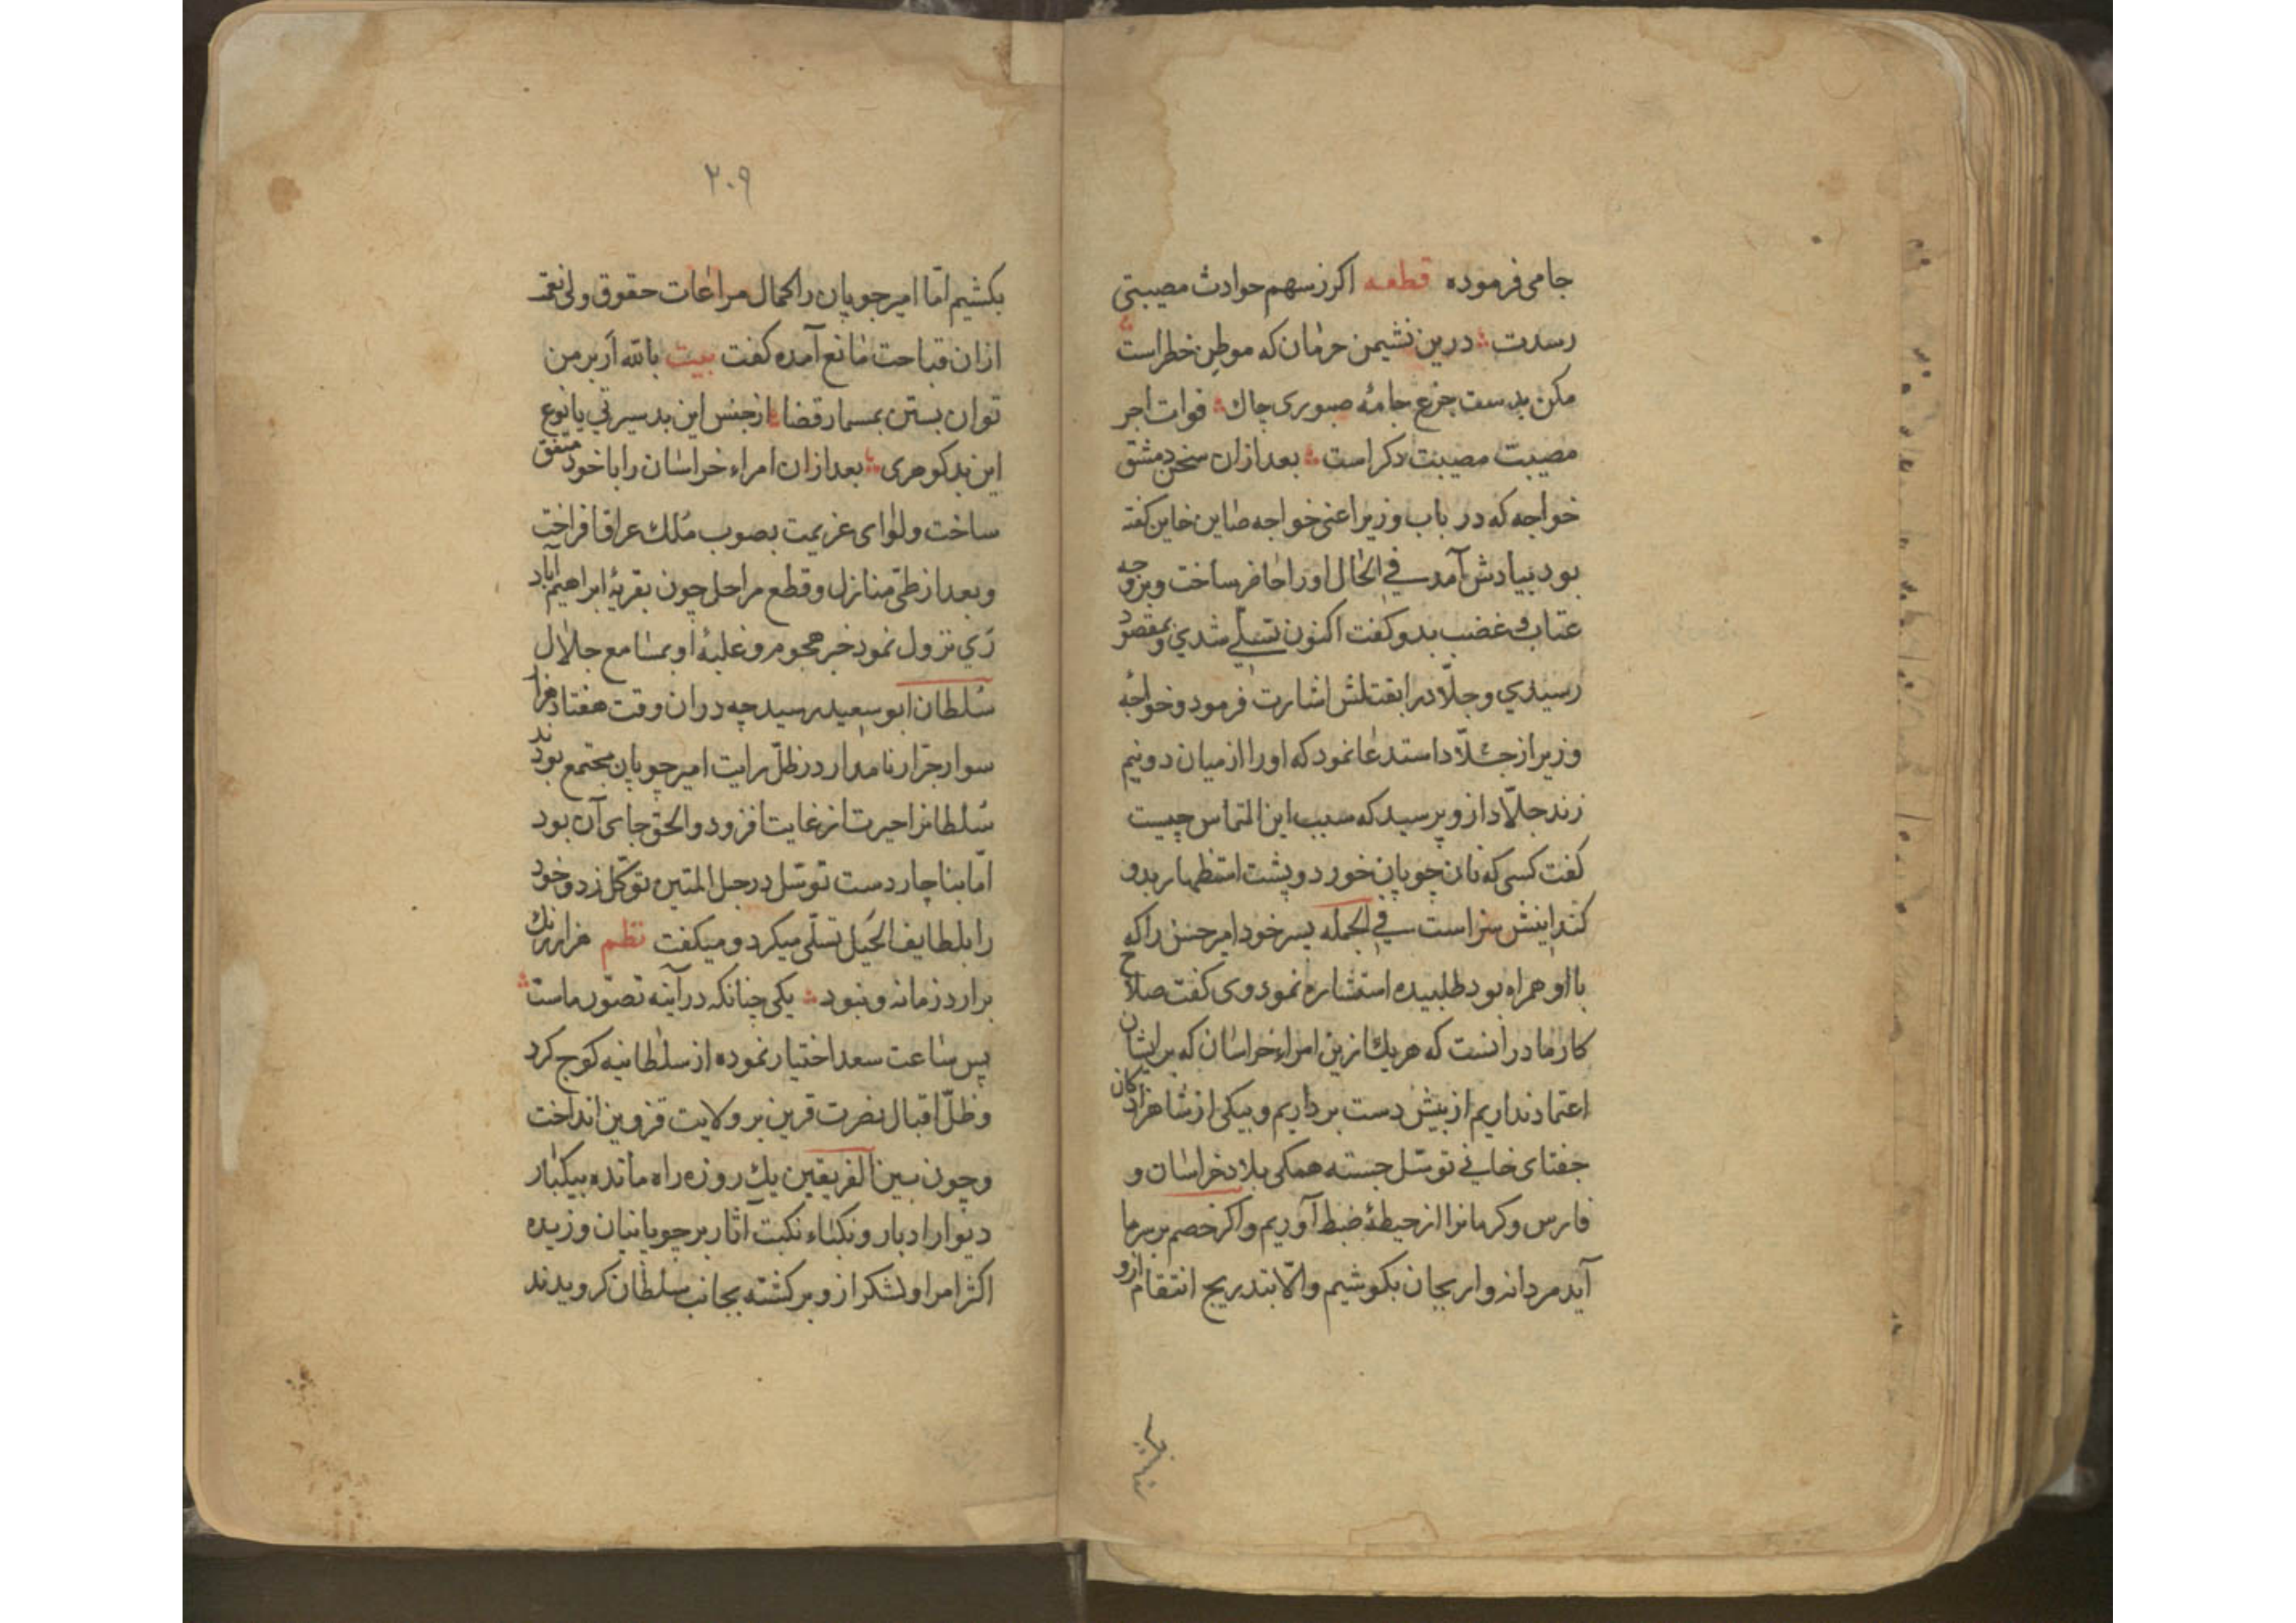 جامی فرموده قطعه اکر ز سهم حوادث مصیبتی
رسدت درین نشیمن حرمان که موطن خطراست
مکن بدست جزع جامهٔ صبوری چاک فوات اجر
مصیبت مصیبت دکراست بعد ازان سخن دمشق
خواجه که در باب وزیر اعنی خواجه صاین خاین کفته
بود بیادش آمد فی الحال اورا حاضر ساخت و بروجه
عتاب و غضب بدو کفت اکنون تسلی شدی و بمقصود
رسیدی و جلّاد را بقتلش اشارت فرمود و خواجهٔ
وزیر از جلّاد استدعا نمود که اورا از میان دو نیم
زند جلّاد ازو پرسید که سبب این التماس چیست
کفت کسی که نان چوپان خورد و پشت استظهار بدو
کند اینش سزاست فی الجمله پسر خود امیر حسن را که
با او همراه بود طلبیده استشاره نمود وی کفت صلاح
کار ما در انست که هر یک ازین امراء خراسان که برایشان
اعتماد نداریم از پیش دست برداریم و بیکی از شاهزادکان
جغتای خانی توسّل جسته همکی بلاد خراسان و
فارس و کرمانرا از حیطهٔ ضبط آوریم و اکر خصم بر سر ما
آید مردانه وار بجان بکوشیم والّا بتدریج انتقام ازو
۲۰۹
بکشیم امّا امیر چوپان را کمال مراعات حقوق ولی نعمـ
ازان قباحت مانع آمده کفت بیت بالله ار بر من
توان بستن بمسمار قضا از جنس این بد سیرتی یا نوع
این بد کوهری بعد ازان امراء خراسان را با خود متفق
ساخت و لوای عزیمت بصوب مُلک عراق افراخت
و بعد از طیّ منازل و قطع مراحل چون بقریهٔ ابراهیم آباد
ری نزول نمود خبر هجوم و غلبهٔ او بمسامع جلال
سُلطان ابوسعید رسید چه دران وقت هفتاد هزار
سوار جرّار نامدار در ظلّ رایت امیر چوپان مجتمع بودند
سُلطانرا حیرت از غایت افزود و الحق جای آن بود
امّا بناچار دست توسّل در حبل المتین توکّل زد و خود
را بلطایف الحَیل تسلّی میکرد و میکفت نظم هزار رنک
برارد زمانه و نبود یکی چنانکه در آینه تصوّر ماست
پس ساعت سعد اختیار نموده از سلطانیه کوچ کرد
و ظلّ اقبال نصرت قرین بر ولایت قزوین انداخت
و چون بین الفریقین یک روزه راه مانده بیکبار
دیوار ادبار و نکباء نکبت آثار بر چوپانیان وزیده
اکثر امرا و لشکر ازو برکشته بجانب سلطان کرویدند